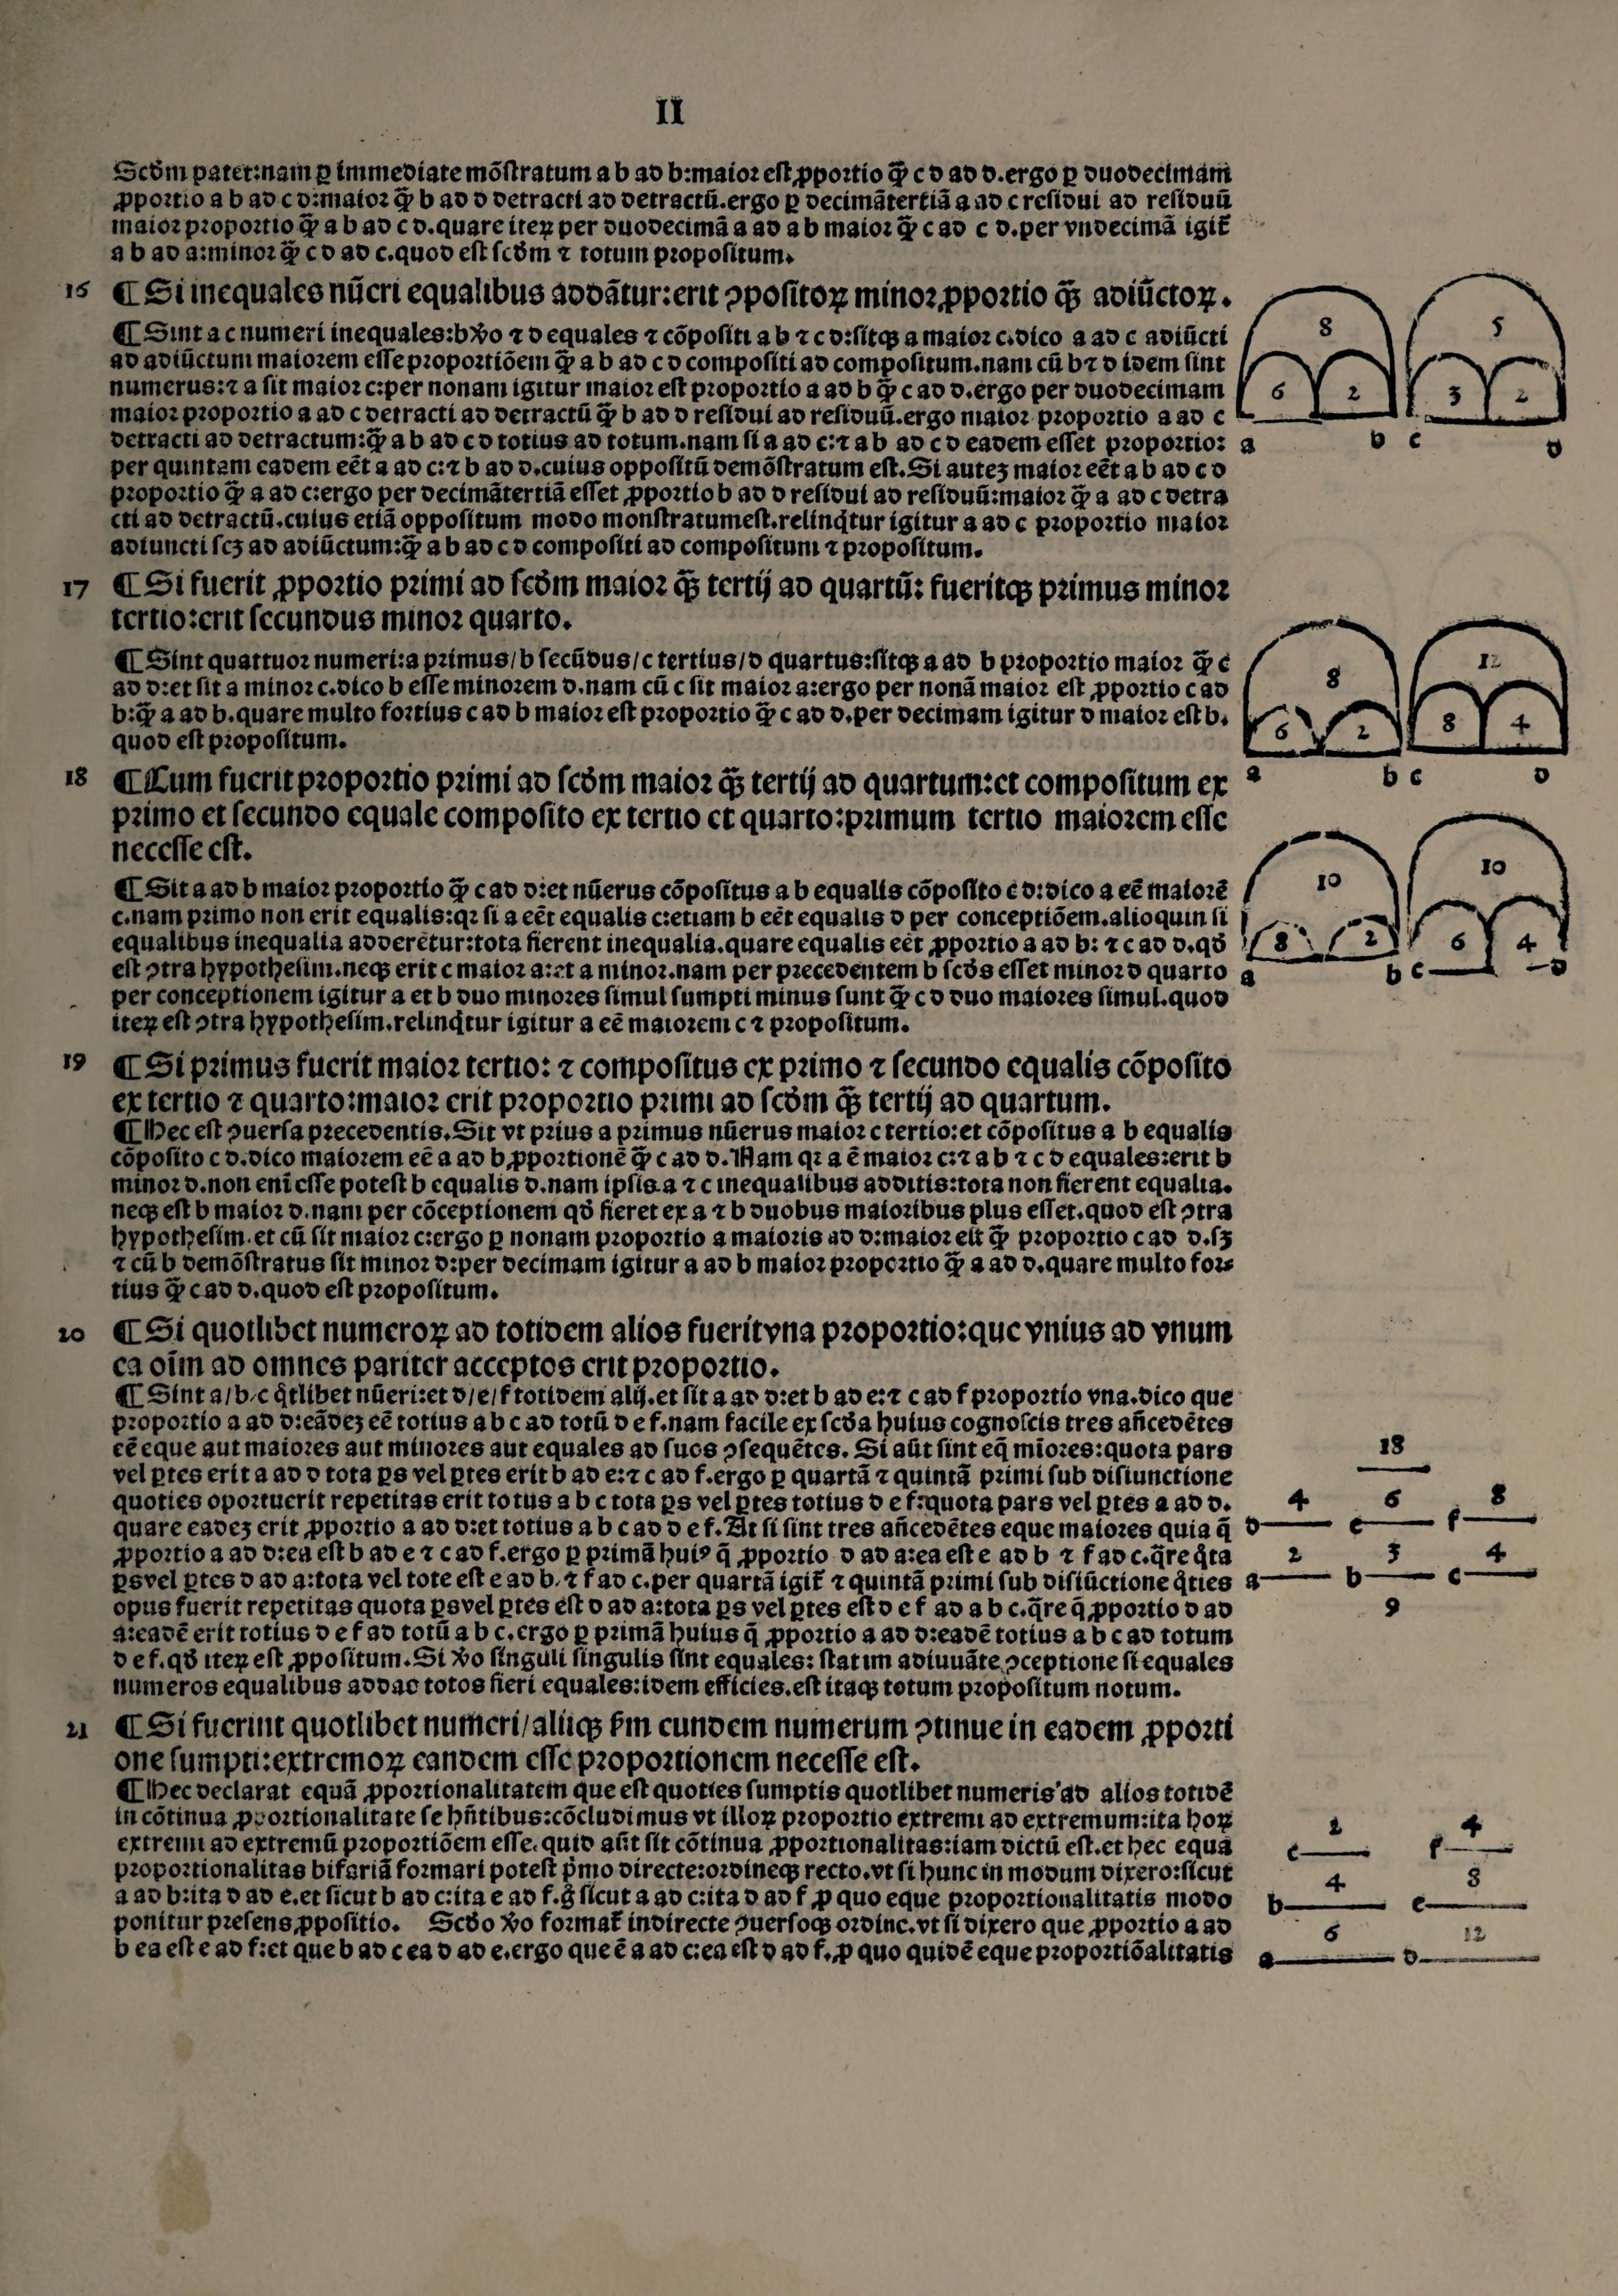 II
Scďm patet:nam ꝑ immediate mõſtratum a b ad b:maior eſt ꝓportio ꝙ̃ c d ad d.ergo ꝑ duodecimam
ꝓportio a b ad c d:maior ꝙ̃ b ad d detracti ad detractũ.ergo ꝑ decimãtertiã a ad c reſidui ad reſiduũ
maior proportio ꝙ̃ a b ad c d.quare iteꝝ per duodecimã a ad a b maior ꝙ̃ c ad c d.per vndecimã igit̃
a b ad a:minor ꝙ̃ c d ad c.quod eſt ſcďm ⁊ totum propoſitum.
16 ¶ Si inequales nũeri equalibus addãtur:erit ↄpoſitoꝝ minor ꝓportio ꝙ̃ adiũctoꝝ.
¶ Sint a c numeri inequales:b ꝟo ⁊ d equales ⁊ cõpoſiti a b ⁊ c d:ſitqꝫ a maior c.dico a ad c adiũcti
ad adiũctum maiorem eſſe proportiõem ꝙ̃ a b ad c d compoſiti ad compoſitum.nam cũ b ⁊ d idem ſint
numerus:⁊ a ſit maior c:per nonam igitur maior eſt proportio a ad b ꝙ̃ c ad d.ergo per duodecimam
maior proportio a ad c detracti ad detractũ ꝙ̃ b ad d reſidui ad reſiduũ.ergo maior proportio a ad c
detracti ad detractum:ꝙ̃ a b ad c d totius ad totum.nam ſi a ad c:⁊ a b ad c d eadem eſſet proportio:
per quintam eadem eẽt a ad c:⁊ b ad d.cuius oppoſitũ demõſtratum eſt.Si auteꝫ maior eẽt a b ad c d
proportio ꝙ̃ a ad c:ergo per decimãtertiã eſſet ꝓportio b ad d reſidui ad reſiduũ:maior ꝙ̃ a ad c detra
cti ad detractũ.cuius etiã oppoſitum modo monſtratumeſt.relinq̇tur igitur a ad c proportio maior
adiuncti ſcꝫ ad adiũctum:ꝙ̃ a b ad c d compoſiti ad compoſitum ⁊ propoſitum.
8 5
6 2 3 2
a b c d
17 ¶ Si fuerit ꝓportio primi ad ſcďm maior ꝙ̃ tertij ad quartũ: fueritqꝫ primus minor
tertio:erit ſecundus minor quarto.
¶ Sint quattuor numeri:a primus/b ſecũdus/c tertius/d quartus:ſitqꝫ a ad b proportio maior ꝙ̃ c
ad d:et ſit a minor c.dico b eſſe minorem d.nam cũ c ſit maior a:ergo per nonã maior eſt ꝓportio c ad
b:ꝙ̃ a ad b.quare multo fortius c ad b maior eſt proportio ꝙ̃ c ad d.per decimam igitur d maior eſt b.
quod eſt propoſitum.
8 12
6 2 8 4
a b c d
18 ¶ Cum fuerit proportio primi ad ſcďm maior ꝙ̃ tertij ad quartum:et compoſitum ex
primo et ſecundo equale compoſito ex tertio et quarto:primum tertio maiorem eſſe
neceſſe eſt.
¶ Sit a ad b maior proportio ꝙ̃ c ad d:et nũerus cõpoſitus a b equalis cõpoſito c d:dico a eẽ maiorẽ
c.nam primo non erit equalis:qꝛ ſi a eẽt equalis c:etiam b eẽt equalis d per conceptiõem.alioquin ſi
equalibus inequalia adderẽtur:tota fierent inequalia.quare equalis eẽt ꝓportio a ad b: ⁊ c ad d.qď
eſt ↄtra hypotheſim.neqꝫ erit c maior a:et a minor.nam per precedentem b ſcďs eſſet minor d quarto
per conceptionem igitur a et b duo minores ſimul ſumpti minus ſunt ꝙ̃ c d duo maiores ſimul.quod
iteꝝ eſt ↄtra hypotheſim.relinq̇tur igitur a eẽ maiorem c ⁊ propoſitum.
10 10
8 2 6 4
a b c d
19 ¶ Si primus fuerit maior tertio: ⁊ compoſitus ex primo ⁊ ſecundo equalis cõpoſito
ex tertio ⁊ quarto:maior erit proportio primi ad ſcďm ꝙ̃ tertij ad quartum.
¶ Hec eſt ↄuerſa precedentis.Sit vt prius a primus nũerus maior c tertio:et cõpoſitus a b equalis
cõpoſito c d.dico maiorem eẽ a ad b ꝓportionẽ ꝙ̃ c ad d.Nam qꝛ a ẽ maior c:⁊ a b ⁊ c d equales:erit b
minor d.non enĩ eſſe poteſt b equalis d.nam ipſis a ⁊ c inequalibus additis:tota non fierent equalia.
neqꝫ eſt b maior d.nam per cõceptionem qď fieret ex a ⁊ b duobus maioribus plus eſſet.quod eſt ↄtra
hypotheſim.et cũ ſit maior c:ergo ꝑ nonam proportio a maioris ad d:maior eſt ꝙ̃ proportio c ad d.ſꝫ
⁊ cũ b demõſtratus ſit minor d:per decimam igitur a ad b maior proportio ꝙ̃ a ad d.quare multo for⸗
tius ꝙ̃ c ad d.quod eſt propoſitum.
20 ¶ Si quotlibet numeroꝝ ad totidem alios fueritvna proportio:que vnius ad vnum
ea oĩm ad omnes pariter acceptos erit proportio.
¶ Sint a/b/c q̇tlibet nũeri:et d/e/f totidem alij.et ſit a ad d:et b ad e:⁊ c ad f proportio vna.dico que
proportio a ad d:eãdeꝫ eẽ totius a b c ad totũ d e f.nam facile ex ſcďa huius cognoſcis tres añcedẽtes
eẽ eque aut maiores aut minores aut equales ad ſuos ↄſequẽtes. Si aũt ſint eq̃ mĩores:quota pars
vel ꝑtes erit a ad d tota ꝑs vel ꝑtes erit b ad e:⁊ c ad f.ergo ꝑ quartã ⁊ quintã primi ſub diſiunctione
quoties oportuerit repetitas erit totus a b c tota ꝑs vel ꝑtes totius d e f:quota pars vel ꝑtes a ad d.
quare eadeꝫ erit ꝓportio a ad d:et totius a b c ad d e f.At ſi ſint tres añcedẽtes eque maiores quia q̃
ꝓportio a ad d:ea eſt b ad e ⁊ c ad f.ergo ꝑ primã huiꝰ q̃ ꝓportio d ad a:ea eſt e ad b ⁊ f ad c.q̃re q̇ta
ꝑsvel ꝑtes d ad a:tota vel tote eſt e ad b.⁊ f ad c.per quartã igit̃ ⁊ quintã primi ſub diſiũctione q̇ties
opus fuerit repetitas quota ꝑsvel ꝑtes eſt d ad a:tota ꝑs vel ꝑtes eſt d e f ad a b c.q̃re q̃ ꝓportio d ad
a:eadẽ erit totius d e f ad totũ a b c.ergo ꝑ primã huius q̃ ꝓportio a ad d:eadẽ totius a b c ad totum
d e f.qď iteꝝ eſt ꝓpoſitum.Si ꝟo ſinguli ſingulis ſint equales: ſtatim adiuuãte ↄceptione ſi equales
numeros equalibus addac totos fieri equales:idem efficies.eſt itaqꝫ totum propoſitum notum.
18
4 6 8
d e f
2 3 4
a b c
9
21 ¶ Si fuerint quotlibet numeri/aliiqꝫ ẜm eundem numerum ↄtinue in eadem ꝓporti
one ſumpti:extremoꝝ eandem eſſe proportionem neceſſe eſt.
¶ Hec declarat equã ꝓportionalitatem que eſt quoties ſumptis quotlibet numeris ad alios totidẽ
in cõtinua ꝓportionalitate ſe hñtibus:cõcludimus vt illoꝝ proportio extremi ad extremum:ita hoꝝ
extremi ad extremũ proportiõem eſſe.quid aũt ſit cõtinua ꝓportionalitas:iam dictũ eſt.et hec equa
proportionalitas bifariã formari poteſt p̃mo directe:ordineqꝫ recto.vt ſi hunc in modum dixero:ſicut
a ad b:ita d ad e.et ſicut b ad c:ita e ad f.g̊ ſicut a ad c:ita d ad f ꝓ quo eque proportionalitatis modo
ponitur preſens ꝓpoſitio. Scďo ꝟo format̃ indirecte ↄuerſoqꝫ ordine.vt ſi dixero que ꝓportio a ad
b ea eſt e ad f:et que b ad c ea d ad e.ergo que ẽ a ad c:ea eſt d ad f.ꝓ quo quidẽ eque proportiõalitatis
2 4
c f
4 8
b e
6 12
a d